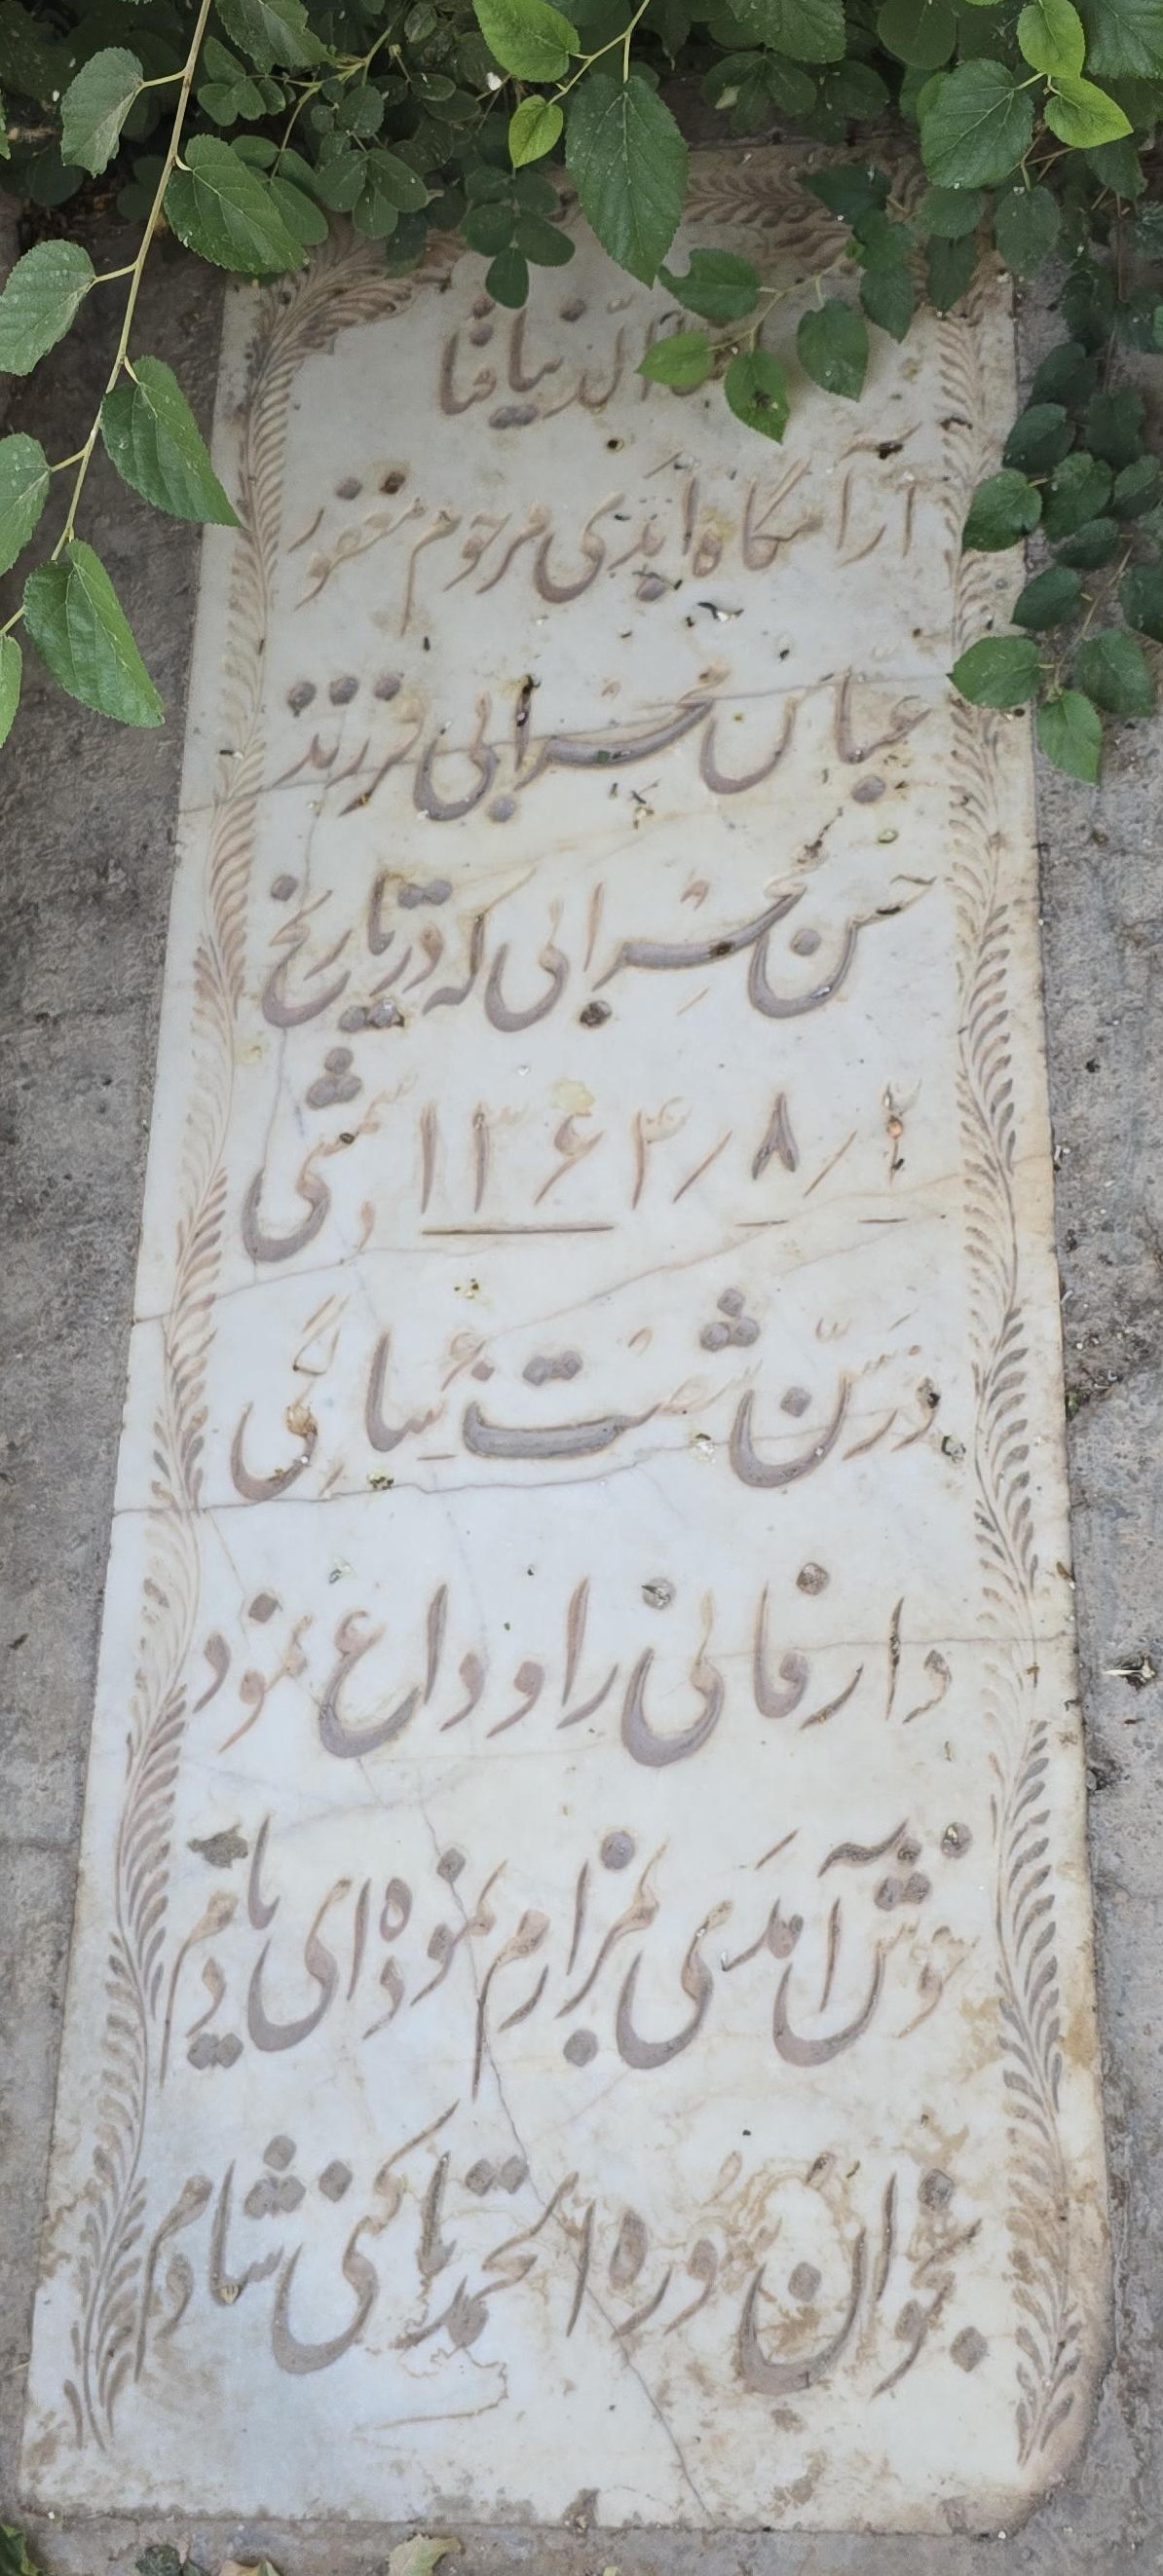 الدنیا فنا
آرامگاه ابدی مرحوم مغفور
عباس صحرابی فرزند
حسن صحرابی که در تاریخ
۸/۱۳۶۴ شمسی
در سن شصت سالگی
دار فانی را وداع نمود
خوش آمدی بمزارم نموده‌ای یادم
بخوان سوره الحمد تا کنی شادم